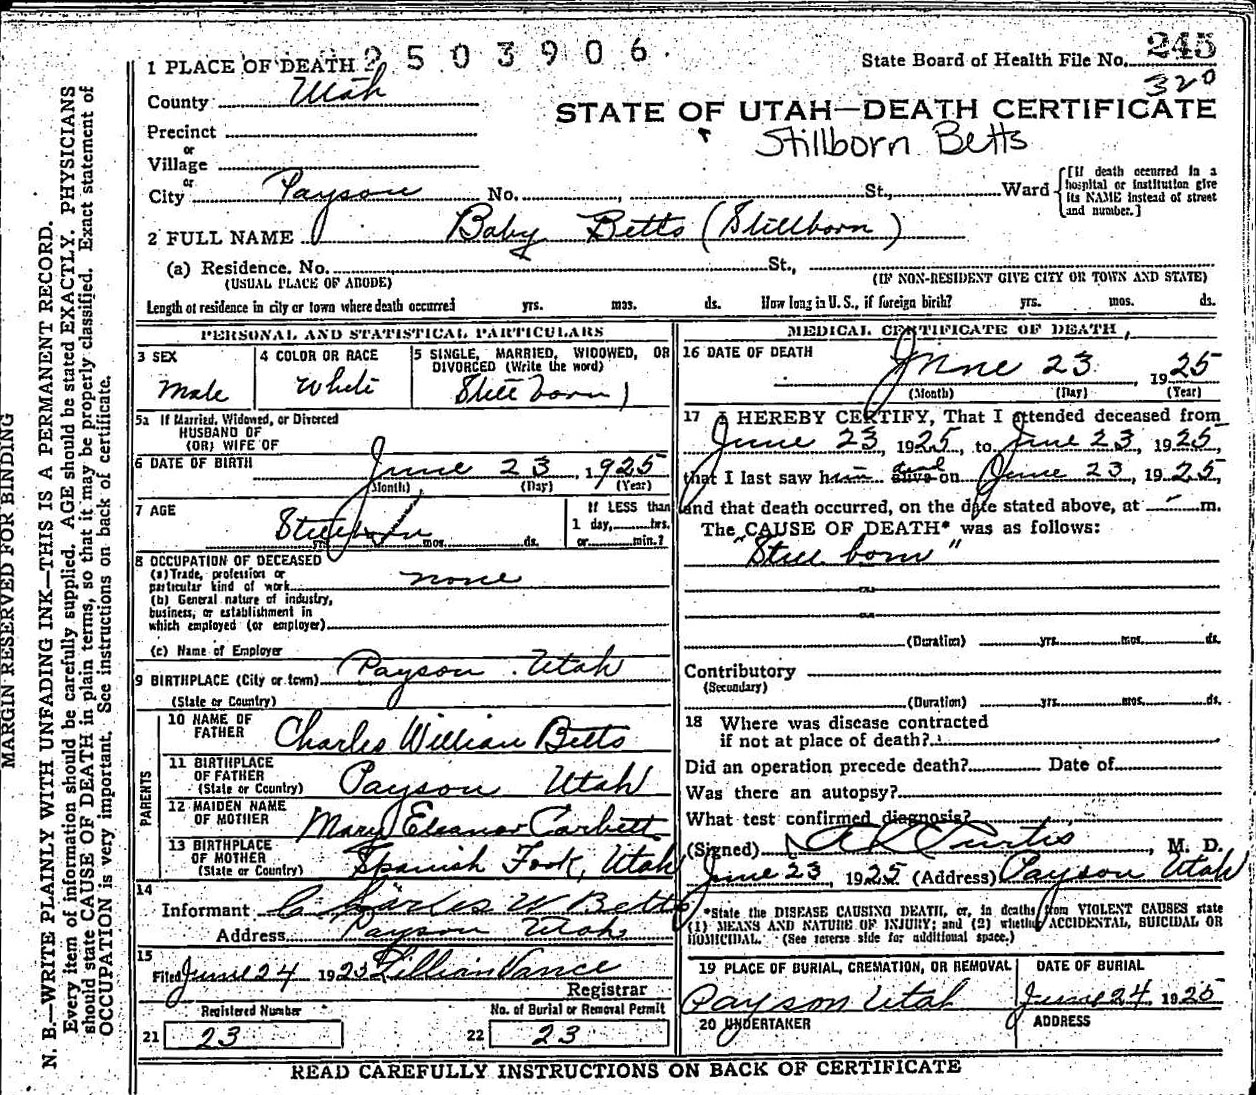 2503906.
245
State Board of Health File No.
320
1 PLACE OF DEATH
County Utah
STATE OF UTAH—DEATH CERTIFICATE
Stillborn Betts
Precinct
or
Village
or
City Payson No. , St., Ward
[If death occurred in a hospital or institution give its NAME instead of street and number.]
2 FULL NAME Baby Betts (Stillborn)
(a) Residence. No. St.,
(USUAL PLACE OF ABODE) (IF NON-RESIDENT GIVE CITY OR TOWN AND STATE)
Length of residence in city or town where death occurred yrs. mos. ds. How long in U. S., if foreign birth? yrs. mos. ds.
PERSONAL AND STATISTICAL PARTICULARS
3 SEX
Male
4 COLOR OR RACE
White
5 SINGLE, MARRIED, WIDOWED, OR
DIVORCED (Write the word)
Still born
5a If Married, Widowed, or Divorced
HUSBAND OF
(OR) WIFE OF
6 DATE OF BIRTH June 23, 1925
(Month) (Day) (Year)
7 AGE
Stillborn
yrs. mos. ds.
If LESS than
1 day, hrs.
or min.?
8 OCCUPATION OF DECEASED
(a) Trade, profession or
particular kind of work none
(b) General nature of industry,
business, or establishment in
which employed (or employer)
(c) Name of Employer
9 BIRTHPLACE (City or town) Payson Utah
(State or Country)
PARENTS
10 NAME OF
FATHER Charles William Betts
11 BIRTHPLACE
OF FATHER
(State or Country) Payson Utah
12 MAIDEN NAME
OF MOTHER Mary Eleanor Corbett
13 BIRTHPLACE
OF MOTHER
(State or Country) Spanish Fork, Utah
14
Informant Charles W Betts
Address Payson Utah
15
Filed June 24 1925 Lillian Vance
Registrar
Registered Number
21 23
No. of Burial or Removal Permit
22 23
MEDICAL CERTIFICATE OF DEATH
16 DATE OF DEATH
June 23, 1925
(Month) (Day) (Year)
17 I HEREBY CERTIFY, That I attended deceased from
June 23, 1925, to June 23, 1925,
that I last saw him alive dead on June 23, 1925,
and that death occurred, on the date stated above, at m.
The CAUSE OF DEATH* was as follows:
"Still born"
(Duration) yrs. mos. ds.
Contributory
(Secondary)
(Duration) yrs. mos. ds.
18 Where was disease contracted
if not at place of death?
Did an operation precede death? Date of
Was there an autopsy?
What test confirmed diagnosis?
(Signed) Curtis, M. D.
June 23, 1925 (Address) Payson Utah
*State the DISEASE CAUSING DEATH, or, in deaths from VIOLENT CAUSES state
(1) MEANS AND NATURE OF INJURY; and (2) whether ACCIDENTAL, SUICIDAL OR
HOMICIDAL. (See reverse side for additional space.)
19 PLACE OF BURIAL, CREMATION, OR REMOVAL
Payson Utah
DATE OF BURIAL
June 24, 1925
20 UNDERTAKER
ADDRESS
READ CAREFULLY INSTRUCTIONS ON BACK OF CERTIFICATE
MARGIN RESERVED FOR BINDING
N. B.—WRITE PLAINLY WITH UNFADING INK—THIS IS A PERMANENT RECORD.
Every item of information should be carefully supplied. AGE should be stated EXACTLY. PHYSICIANS
should state CAUSE OF DEATH in plain terms, so that it may be properly classified. Exact statement of
OCCUPATION is very important. See instructions on back of certificate.